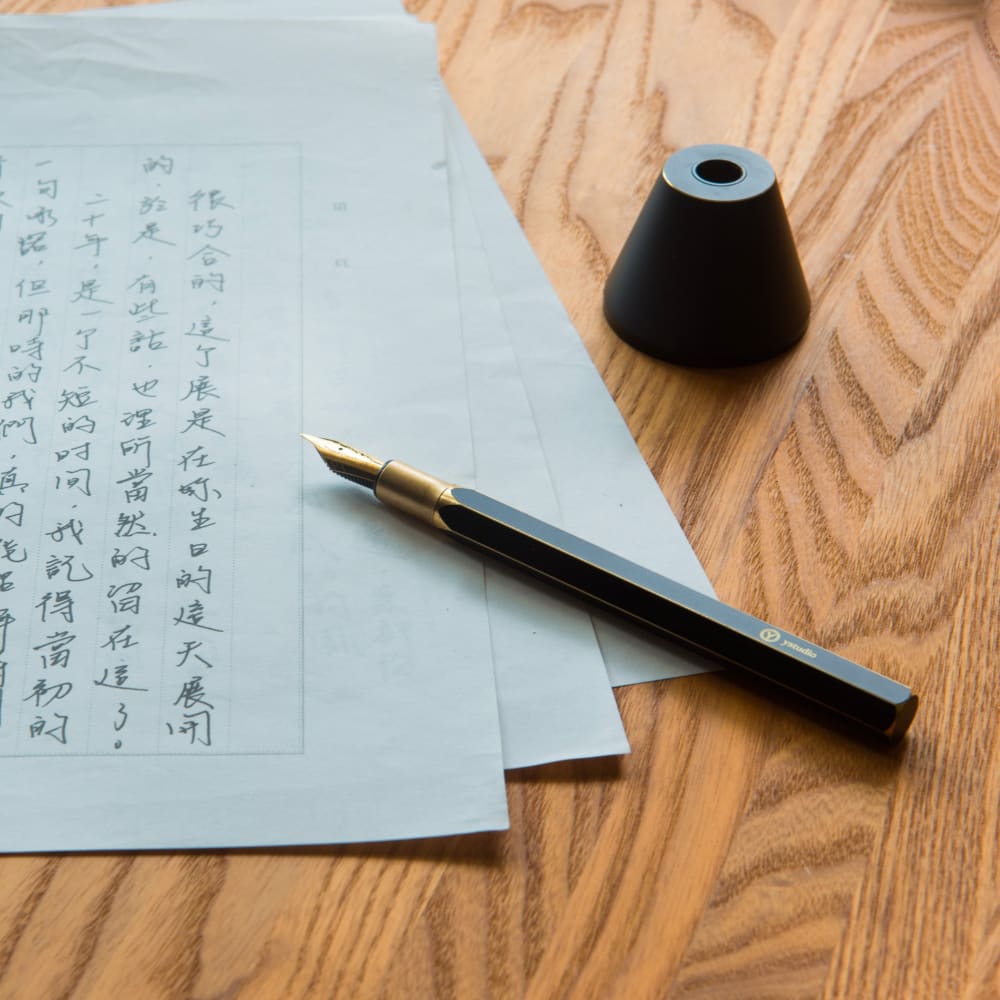 很巧合的，這个展是在你生日的這天展開
的。於是，有些話，也理所當然的留在這了。
二十年，是一个不短的时间，我記得當初的
一句承諾，但那時的我們，真的
ystudio